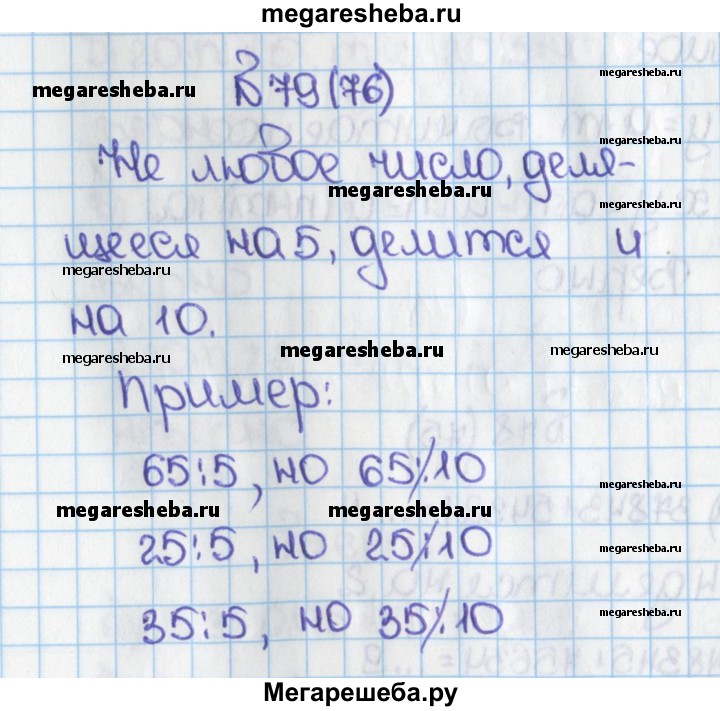 megaresheba.ru
megaresheba.ru
№79(76)
megaresheba.ru
megaresheba.ru
Не любое число, деля-
megaresheba.ru
щееся на 5, делится и
megaresheba.ru
megaresheba.ru
на 10.
megaresheba.ru
megaresheba.ru
megaresheba.ru
Пример:
65⋮5, но 65⋮̸10
megaresheba.ru
megaresheba.ru
megaresheba.ru
25⋮5, но 25⋮̸10
megaresheba.ru
megaresheba.ru
35⋮5, но 35⋮̸10
Мегарешеба.ру